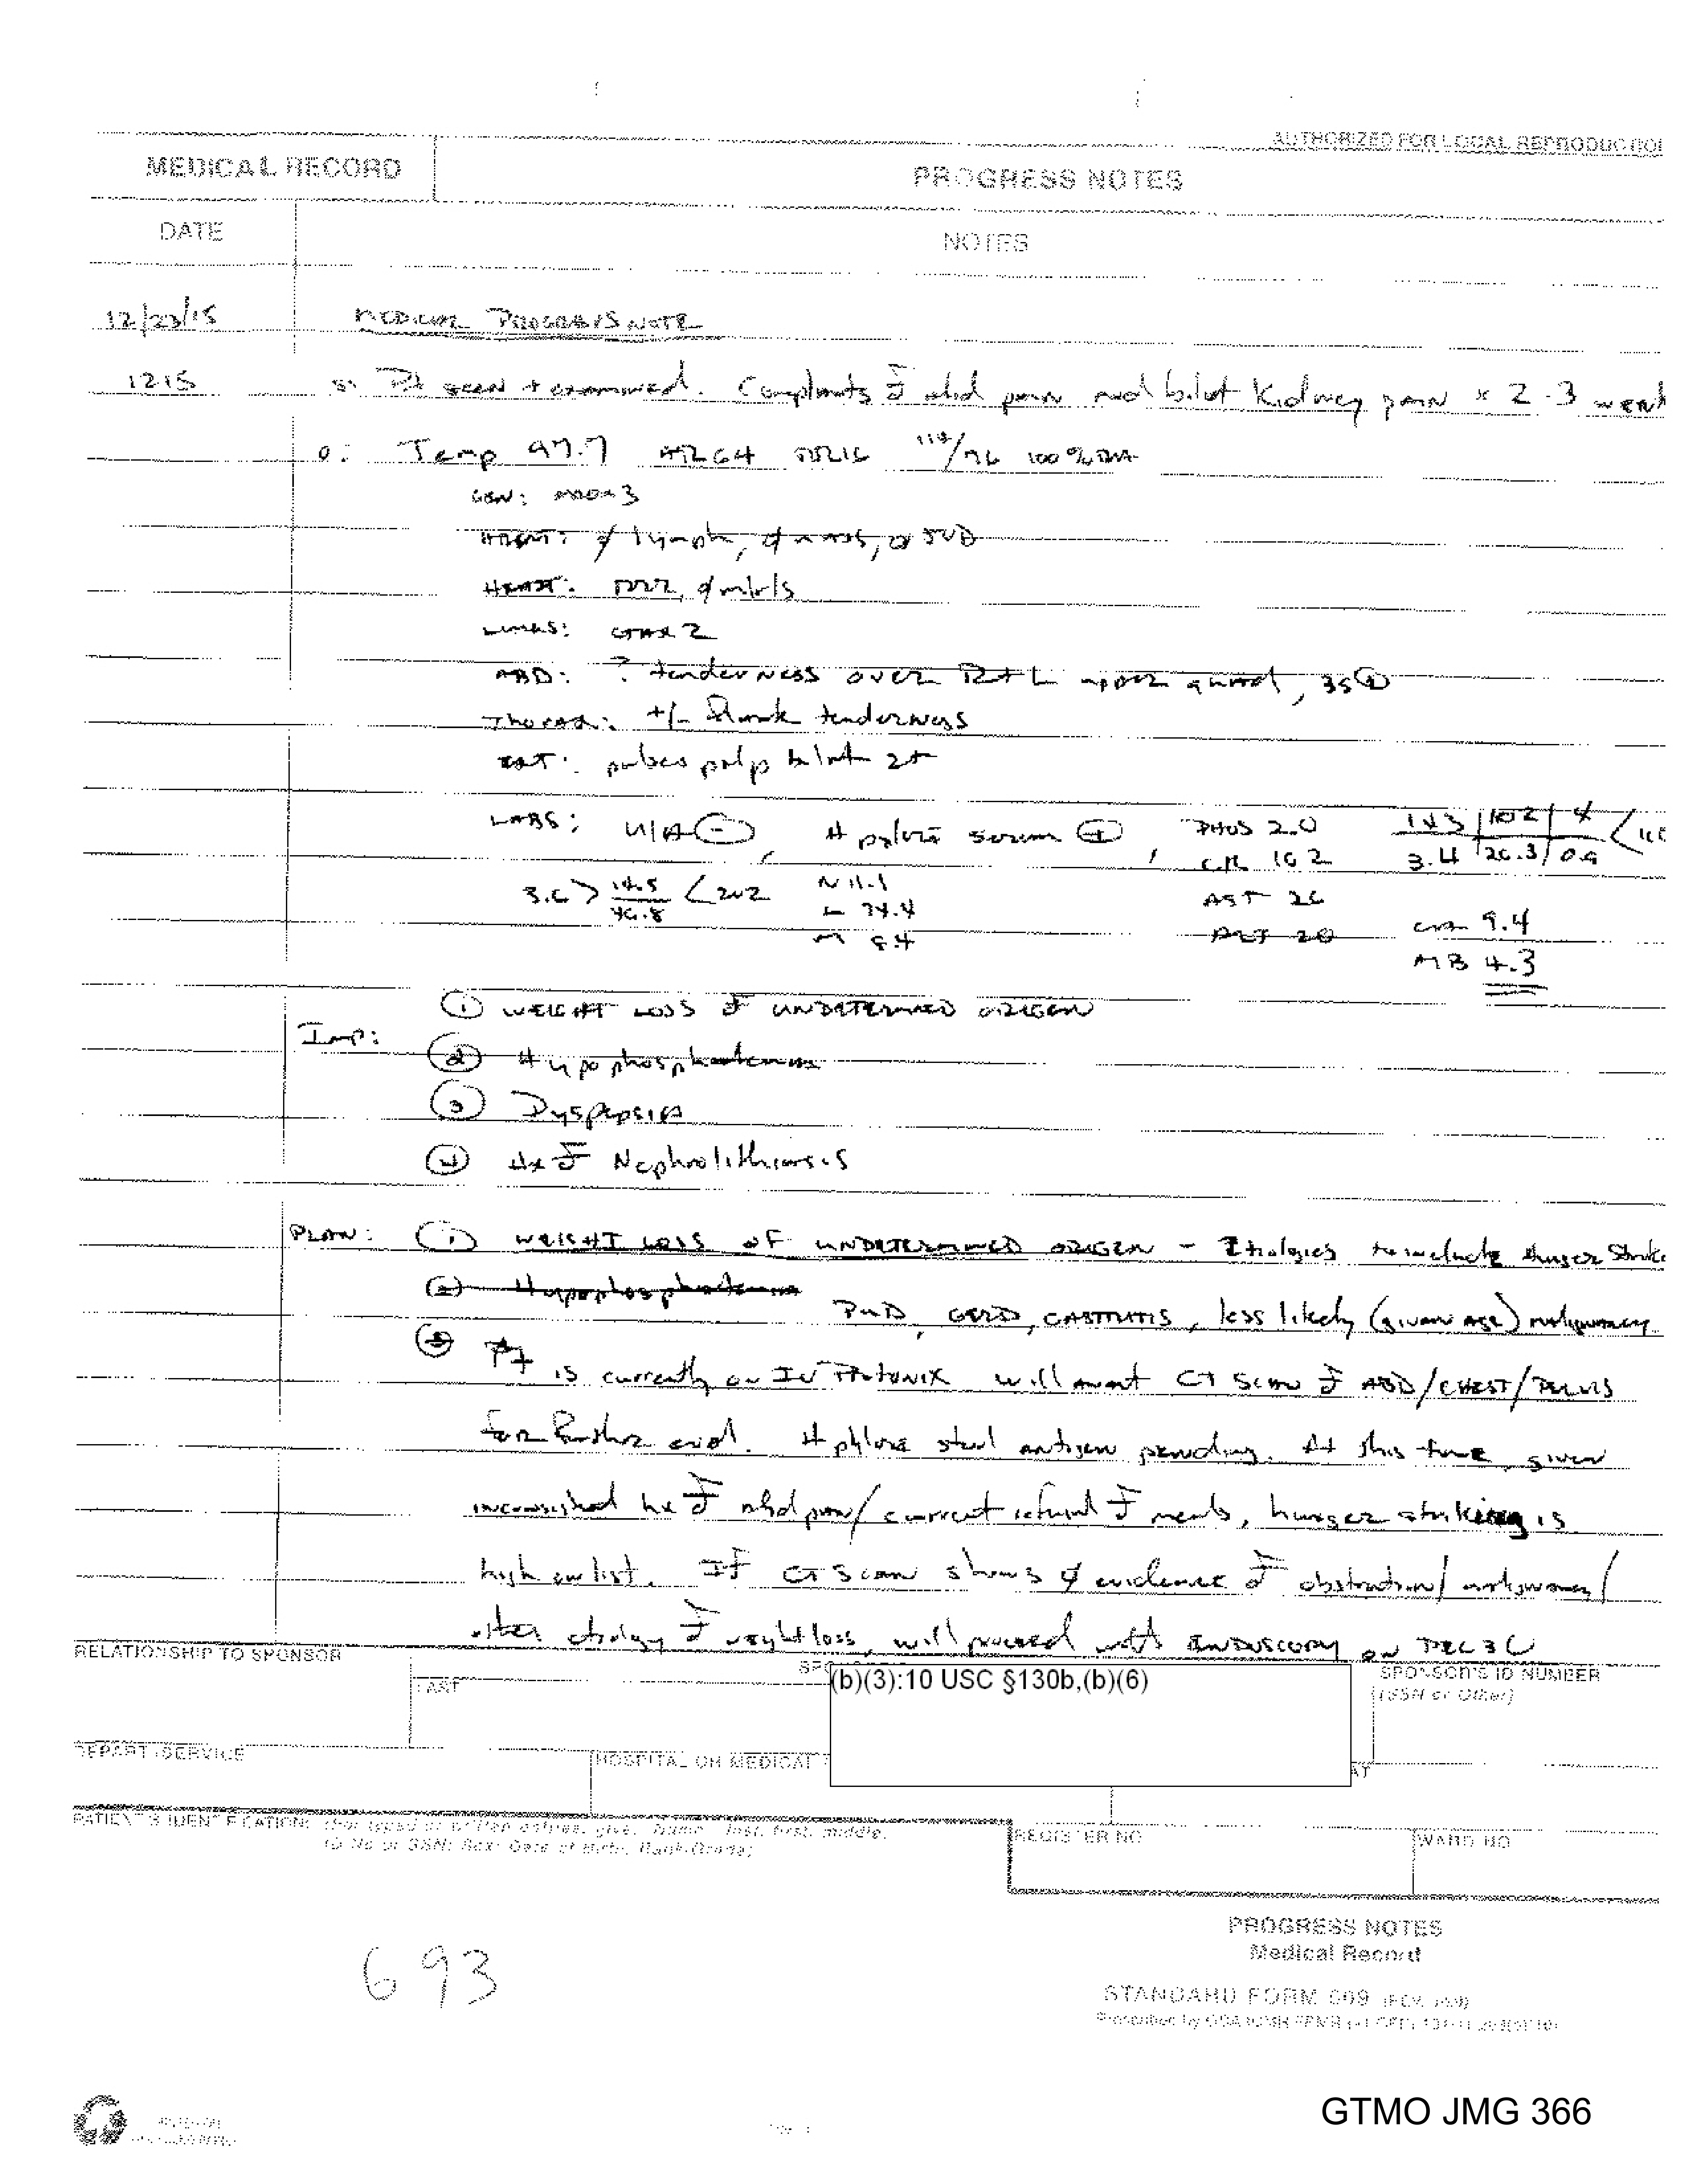 AUTHORIZED FOR LOCAL REPRODUCTION
MEDICAL RECORD
PROGRESS NOTES
DATE
NOTES
12/23/15 MEDICAL PROGRESS NOTE
1215 S: Pt seen + examined. Complaints of abd pain and bilat Kidney pain x 2-3 week
O: Temp 97.7 HR 64 RR 16 /76 100% RA
GEN: AAO x 3
HEENT: ∅ lymph, ∅ mass, ∅ JVD
HEART: RRR, ∅ m/r/s
LUNGS: CTA x 2
ABD: ? tenderness over R + L upper quad, BS
THORAX: +/- flank tenderness
EXT: pulses palp bilat 2+
LABS: U/A (-), H pylori serum (+), PHOS 2.0 143 | 102 | 4
CK 102 3.4 20.3 0.9
3.6 > 14.5 < 202 N 11.1 AST 26
46.8 L 34.4 Ca 9.4
M 8.4 ALT 20
MB 4.3
① WEIGHT LOSS of UNDETERMINED ORIGEN
Imp:
② Hypophosphatemia
③ Dyspepsia
④ Hx of Nephrolithiasis
PLAN: ① WEIGHT LOSS OF UNDETERMINED ORIGEN - Etiologies to include Hunger Strike
② Hypophosphatemia PUD, GERD, GASTRITIS, less likely (given AGE) malignancy
③ Pt is currently on IV Protonix will await CT SCAN of ABD/CHEST/PELVIS
for further eval. H pylori stool antigen pending. At this time, given
hx of abd pain/current refusal of meals, hunger striking is
high on list. If CT Scan shows ∅ evidence of obstruction/malignancy/
other etiology of weight loss, will proceed with ENDOSCOPY on DEC 30
RELATIONSHIP TO SPONSOR
LAST
(b)(3):10 USC §130b,(b)(6)
SPONSOR'S ID NUMBER
(SSN or Other)
DEPART./SERVICE
HOSPITAL OR MEDICAL
AT
PATIENT'S IDENTIFICATION: (For typed or written entries, give: Name - last, first, middle;
ID No or SSN; Sex; Date of Birth; Rank/Grade)
REGISTER NO
WARD NO
PROGRESS NOTES
Medical Record
STANDARD FORM 509
693
GTMO JMG 366